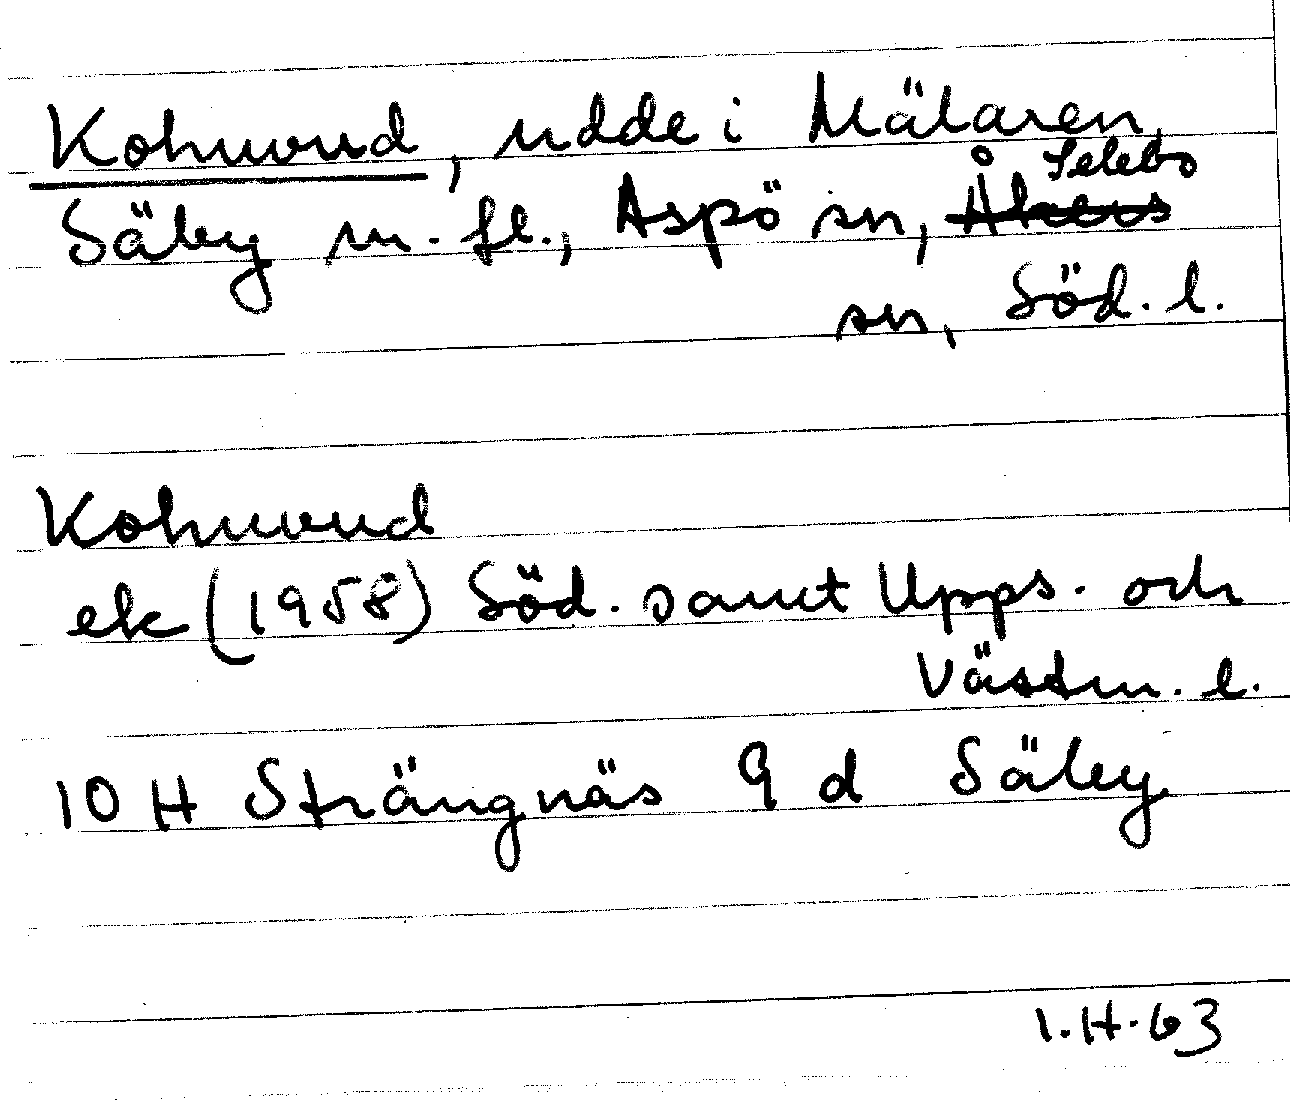 Kohuvud, udde i Mälaren,
Selebo
Säby m. fl., Aspö sn, Åkers
sn, Söd. l.
Kohuvud
ek (1958) Söd. samt Upps. och
Västm. l.
10 H Strängnäs 9 d Säby
I.H.63